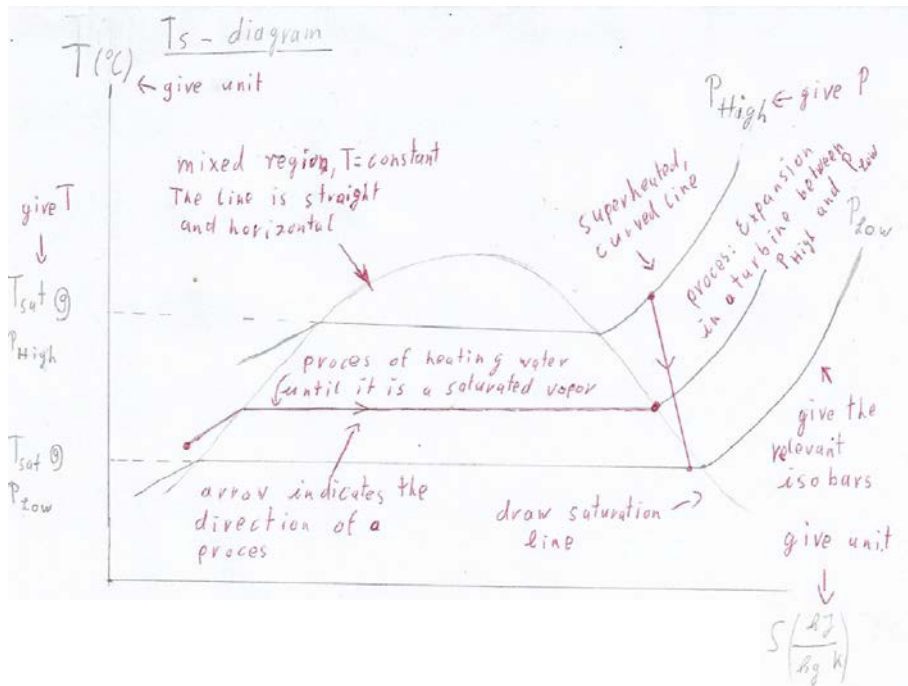 Ts - diagram
T(°C)
← give unit
P High ← give P
mixed region, T=constant
The line is straight
and horizontal
superheated,
curved line
proces: Expansion
in a turbine between
P High and P Low
P Low
give T
T sat @
P High
proces of heating water
until it is a saturated vapor
T sat @
P Low
give the
relevant
isobars
arrow indicates the
direction of a
proces
draw saturation →
line
give unit
S (kJ / kg K)